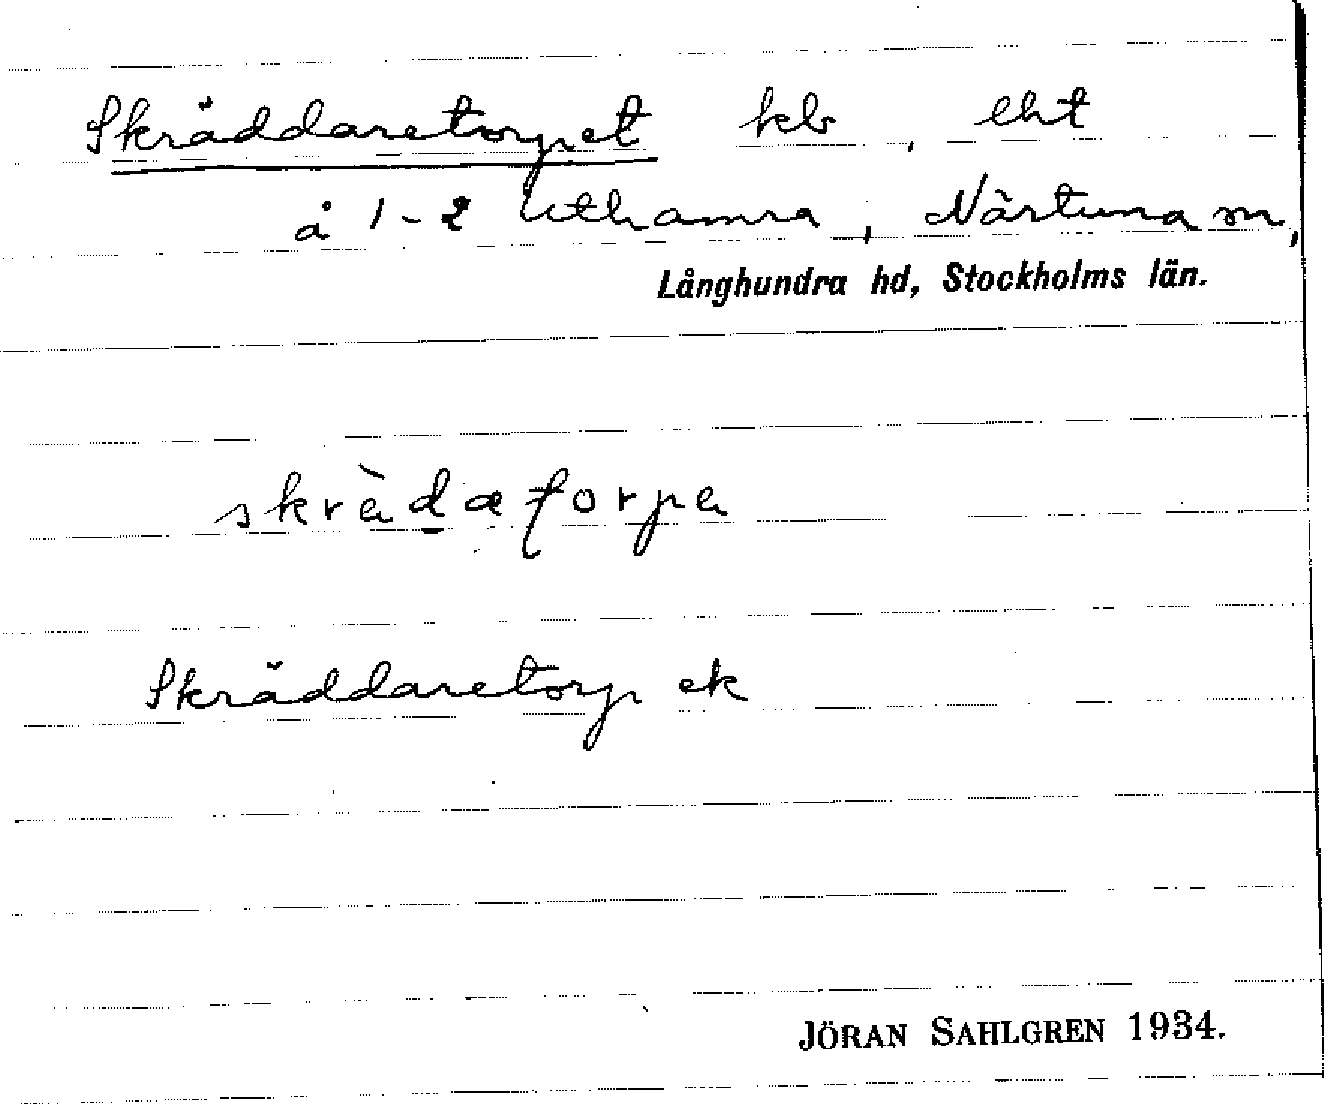 Skräddaretorpet kb, lht
å 1-2 Uthamra, Närtuna sn,
Långhundra hd, Stockholms län.
Skräddaretorp ek
JÖRAN SAHLGREN 1934.